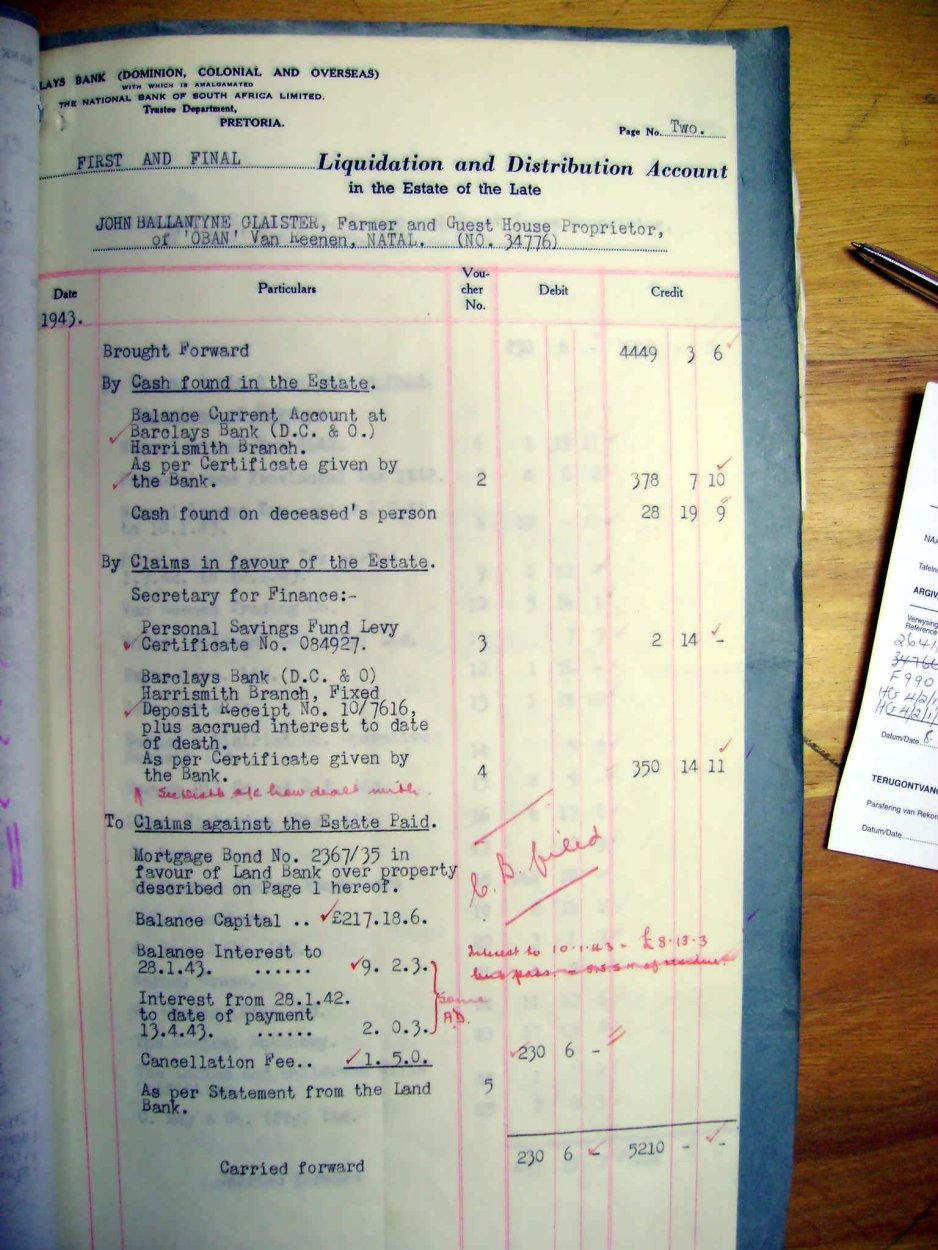 LAYS BANK (DOMINION, COLONIAL AND OVERSEAS)
WITH WHICH IS AMALGAMATED
THE NATIONAL BANK OF SOUTH AFRICA LIMITED.
Trustee Department,
PRETORIA.
Page No. Two.
FIRST AND FINAL Liquidation and Distribution Account
in the Estate of the Late
JOHN BALLANTYNE GLAISTER, Farmer and Guest House Proprietor,
of 'OBAN' Van Reenen, NATAL. (NO. 34776)
Date Particulars Vou-cher No. Debit Credit
1943.
Brought Forward 4449 3 6
By Cash found in the Estate.
Balance Current Account at
Barclays Bank (D.C. & O.)
Harrismith Branch.
As per Certificate given by
the Bank. 2 378 7 10
Cash found on deceased's person 28 19 9
By Claims in favour of the Estate.
Secretary for Finance:-
Personal Savings Fund Levy
Certificate No. 084927. 3 2 14 -
Barclays Bank (D.C. & O)
Harrismith Branch, Fixed
Deposit Receipt No. 10/7616,
plus accrued interest to date
of death.
As per Certificate given by
the Bank. 4 350 14 11
a/c how dealt with.
To Claims against the Estate Paid.
B. filed
Mortgage Bond No. 2367/35 in
favour of Land Bank over property
described on Page 1 hereof.
Balance Capital .. £217.18.6.
Balance Interest to
28.1.43. ...... 9. 2.3.
Interest to 10.1.43 - £8.13.3
Interest from 28.1.42.
to date of payment
13.4.43. ...... 2. 0.3.
A.D.
Cancellation Fee.. 1. 5.0. 230 6 -
As per Statement from the Land
Bank. 5
230 6 - 5210 - -
Carried forward
NAA
Tafelno
ARGIV
Verwysing
Reference
2641
34766
F990
HG 4/2/1
HG 4/2/1
Datum/Date 8
TERUGONTVANG
Parafering van Rekor
Datum/Date